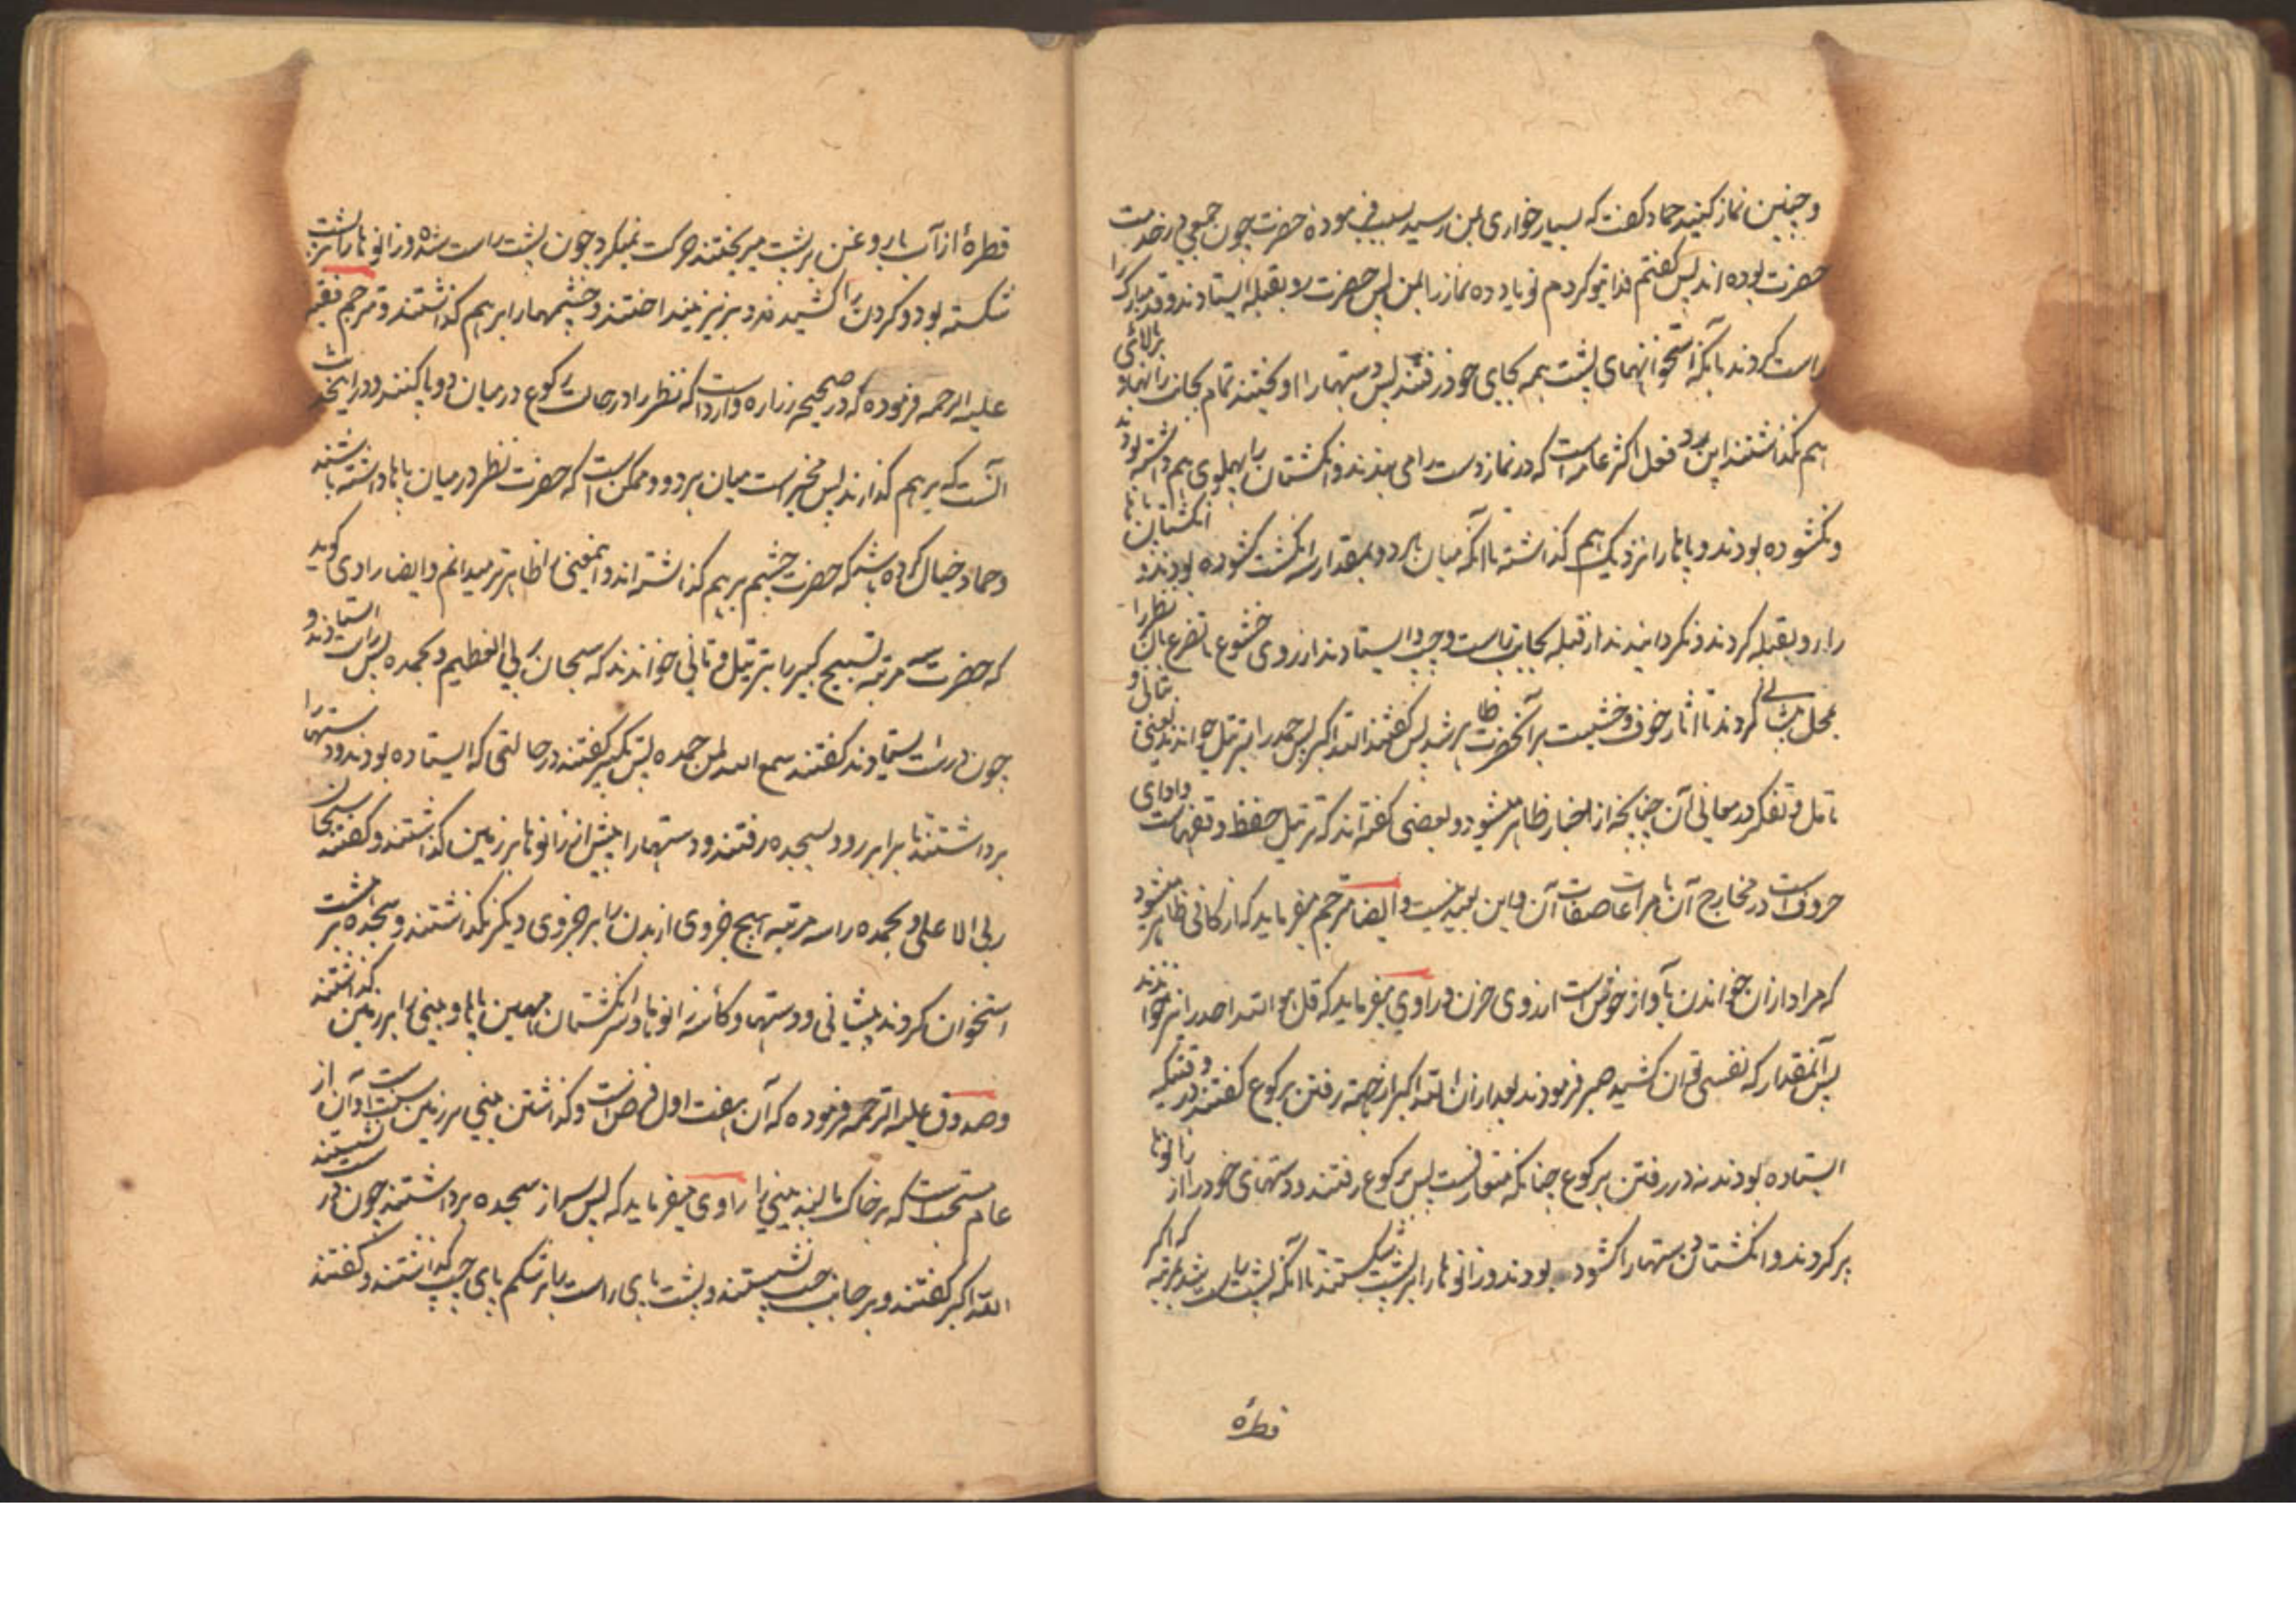 و چنین نماز کنید حماد کفت که بسیار خواری بمن رسید بسبب فرموده حضرت چون جمعی در خدمت
حضرت بوده اند پس کفتم فدا تو کردم تو یاد ده نماز را بمن پس حضرت رو بقبله ایستادند و قد مبارک را
راست کردند بانکه استخوانهای پشت همه بجای خود رفتند پس دستهارا اویختند تمام بجانب رانها و بالای
هم نکذاشتند این رد فعل اکثر عامه است که در نماز دست را می بندند و انکشتان را پهلوی هم داشته بودند
و نکشوده بودند و پاها را نزدیک هم کذاشته تا انکه میان هر دو بمقدار سه انکشت کشوده بودند و انکشتان پا
را رو بقبله کردند و نکردانیدند از قبله بجانب راست و چپ و ایستادند از روی خشوع با تضرع بآن نظر را
بمحل کردند تا اثار خوف و خشیت بر آنحضرت ظاهر شد پس کفتند الله اکبر پس حمد را بترتیل خواندند یعنی بتانی و
تامل و تفکر در معانی آن چنانچه از اخبار ظاهر میشود و بعضی کفته اند که ترتیل حفظ وقفهاست و ادای
حروفست در مخارج آن با مراعات صفات آن و این بعید نیست و ایضا مترجم میفرماید که از رکانی ظاهر میشود
که مراد از آن خواندن بآواز خوش است از روی حزن و راوی میفرماید که قل هو الله احد را نیز خواندند
پس آنمقدار که نفسی توان کشید صبر فرمودند بعد از ان الله اکبر از جهته رفتن برکوع کفتند در وقتیکه
ایستاده بودند نه در رفتن برکوع چنانکه متعارفست پس برکوع رفتند و دستهای خود را از زانوها
پر کردند و انکشتان دستها را کشوده بودند و زانوها را بر پشت شکستند تا انکه پشت راست شد بمرتبه که اکر
قطرهٔ
قطرهٔ از آب یا روغن بر پشت میریختند حرکت نمیکرد چون پشت راست شده و زانوها را بر پشت
شکسته بود و کردن را کشیدند و بزیر نینداختند و چشمها را برهم کذاشتند و مترجم فقیه
علیه الرحمه فرموده که در صحیحه زراره وارد است که نظر را در حالت رکوع در میان دو پا کنند و در اینحدیث
آنست که برهم کذارند پس مخیر است میان هر دو و ممکن است که حضرت نظر در میان پاها داشته باشند
و حماد خیال کرده باشد که حضرت چشم برهم کذاشته اند و اینمعنی را ظاهرتر میدانم و ایضا راوی کوید
که حضرت سه مرتبه تسبیح کبیر را بترتیل و تانی خواندند که سبحان ربی العظیم و بحمده پس راست ایستادند و
چون راست ایستادند کفتند سمع الله لمن حمده پس تکبیر کفتند در حالتی که ایستاده بودند و دستها را
برداشتند تا برابر رو و بسجده رفتند و دستها را پیش از زانوها بر زمین کذاشتند و کفتند سبحان
ربی الاعلی و بحمده را سه مرتبه هیچ جزوی از بدن را بر جزوی دیکر نکذاشتند و سجده بر هشت
استخوان کردند پیشانی و دستها و کاسه زانوها و سر انکشتان مهین پاها و بینی را بر زمین کذاشتند
و صدوق علیه الرحمه فرموده که آن هفت اول فرض است و کذاشتن بینی بر زمین سنت است و آن از
عام مستحب است که بر خاک بمالند بینی را راوی میفرماید که پس سر از سجده برداشتند چون درست نشستند
الله اکبر کفتند و بر جانب چپ نشستند و پشت پای راست را بر شکم پای چپ کذاشتند و کفتند